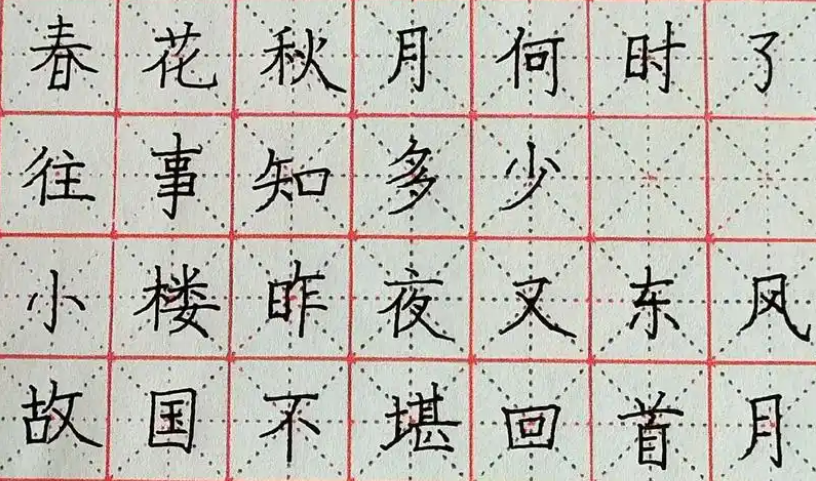 春花秋月何时了
往事知多少
小楼昨夜又东风
故国不堪回首月